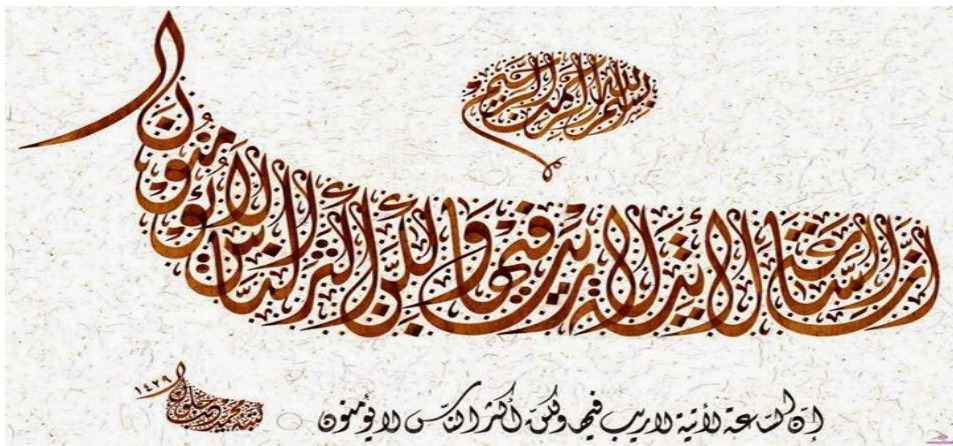 بسم الله الرحمن الرحيم
إن الساعة لآتية لا ريب فيها ولكن أكثر الناس لا يؤمنون
إن الساعة لأتية لاريب فيها ولكن أكثر الناس لا يؤمنون
١٤٢٩